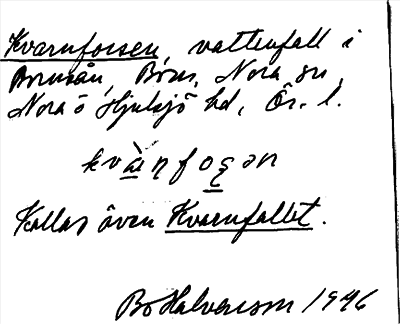 Kvarnforsen, vattenfall i
Borsån, Born, Nora sn,
Nora o Hjulsjö hd, Ör. l.
kvànfoʂən
Kallas även Kvarnfallet.
Bo Halvarson 1946